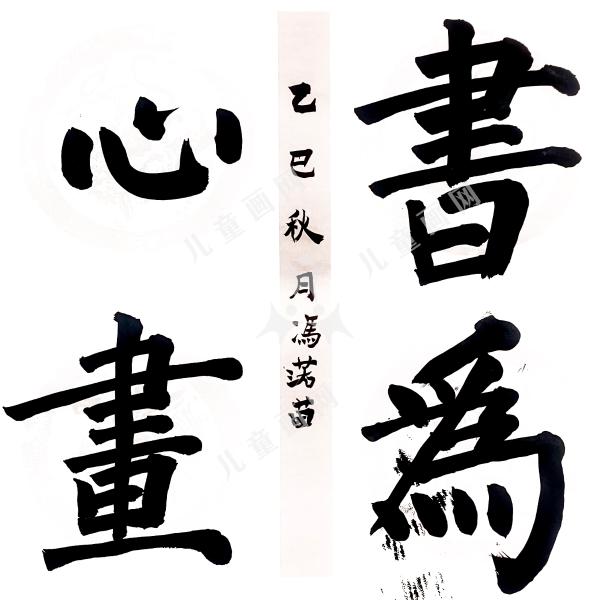 書為
乙巳秋月馮諾苗
心畫
儿童画网
儿童画网
儿童画网